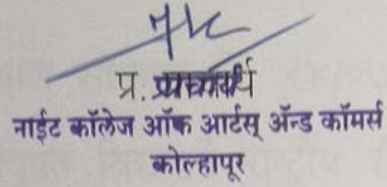 प्र. प्राचार्य
नाईट कॉलेज ऑफ आर्टस् ॲन्ड कॉमर्स
कोल्हापूर